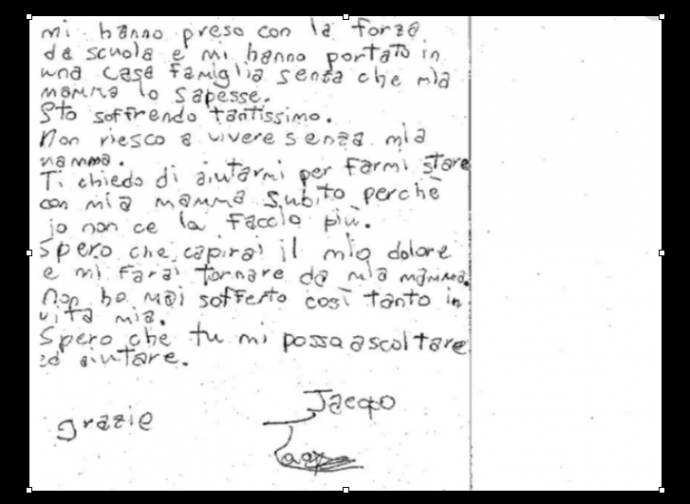 mi hanno preso con la forza
da scuola e mi hanno portato in
una casa famiglia senza che mia
mamma lo sapesse.
Sto soffrendo tantissimo.
Non riesco a vivere senza mia
mamma.
Ti chiedo di aiutarmi per farmi stare
con mia mamma subito perchè
io non ce la faccio più.
Spero che capirai il mio dolore
e mi farai tornare da mia mamma.
Non ho mai sofferto così tanto in
vita mia.
Spero che tu mi possa ascoltare
ed aiutare.
grazie